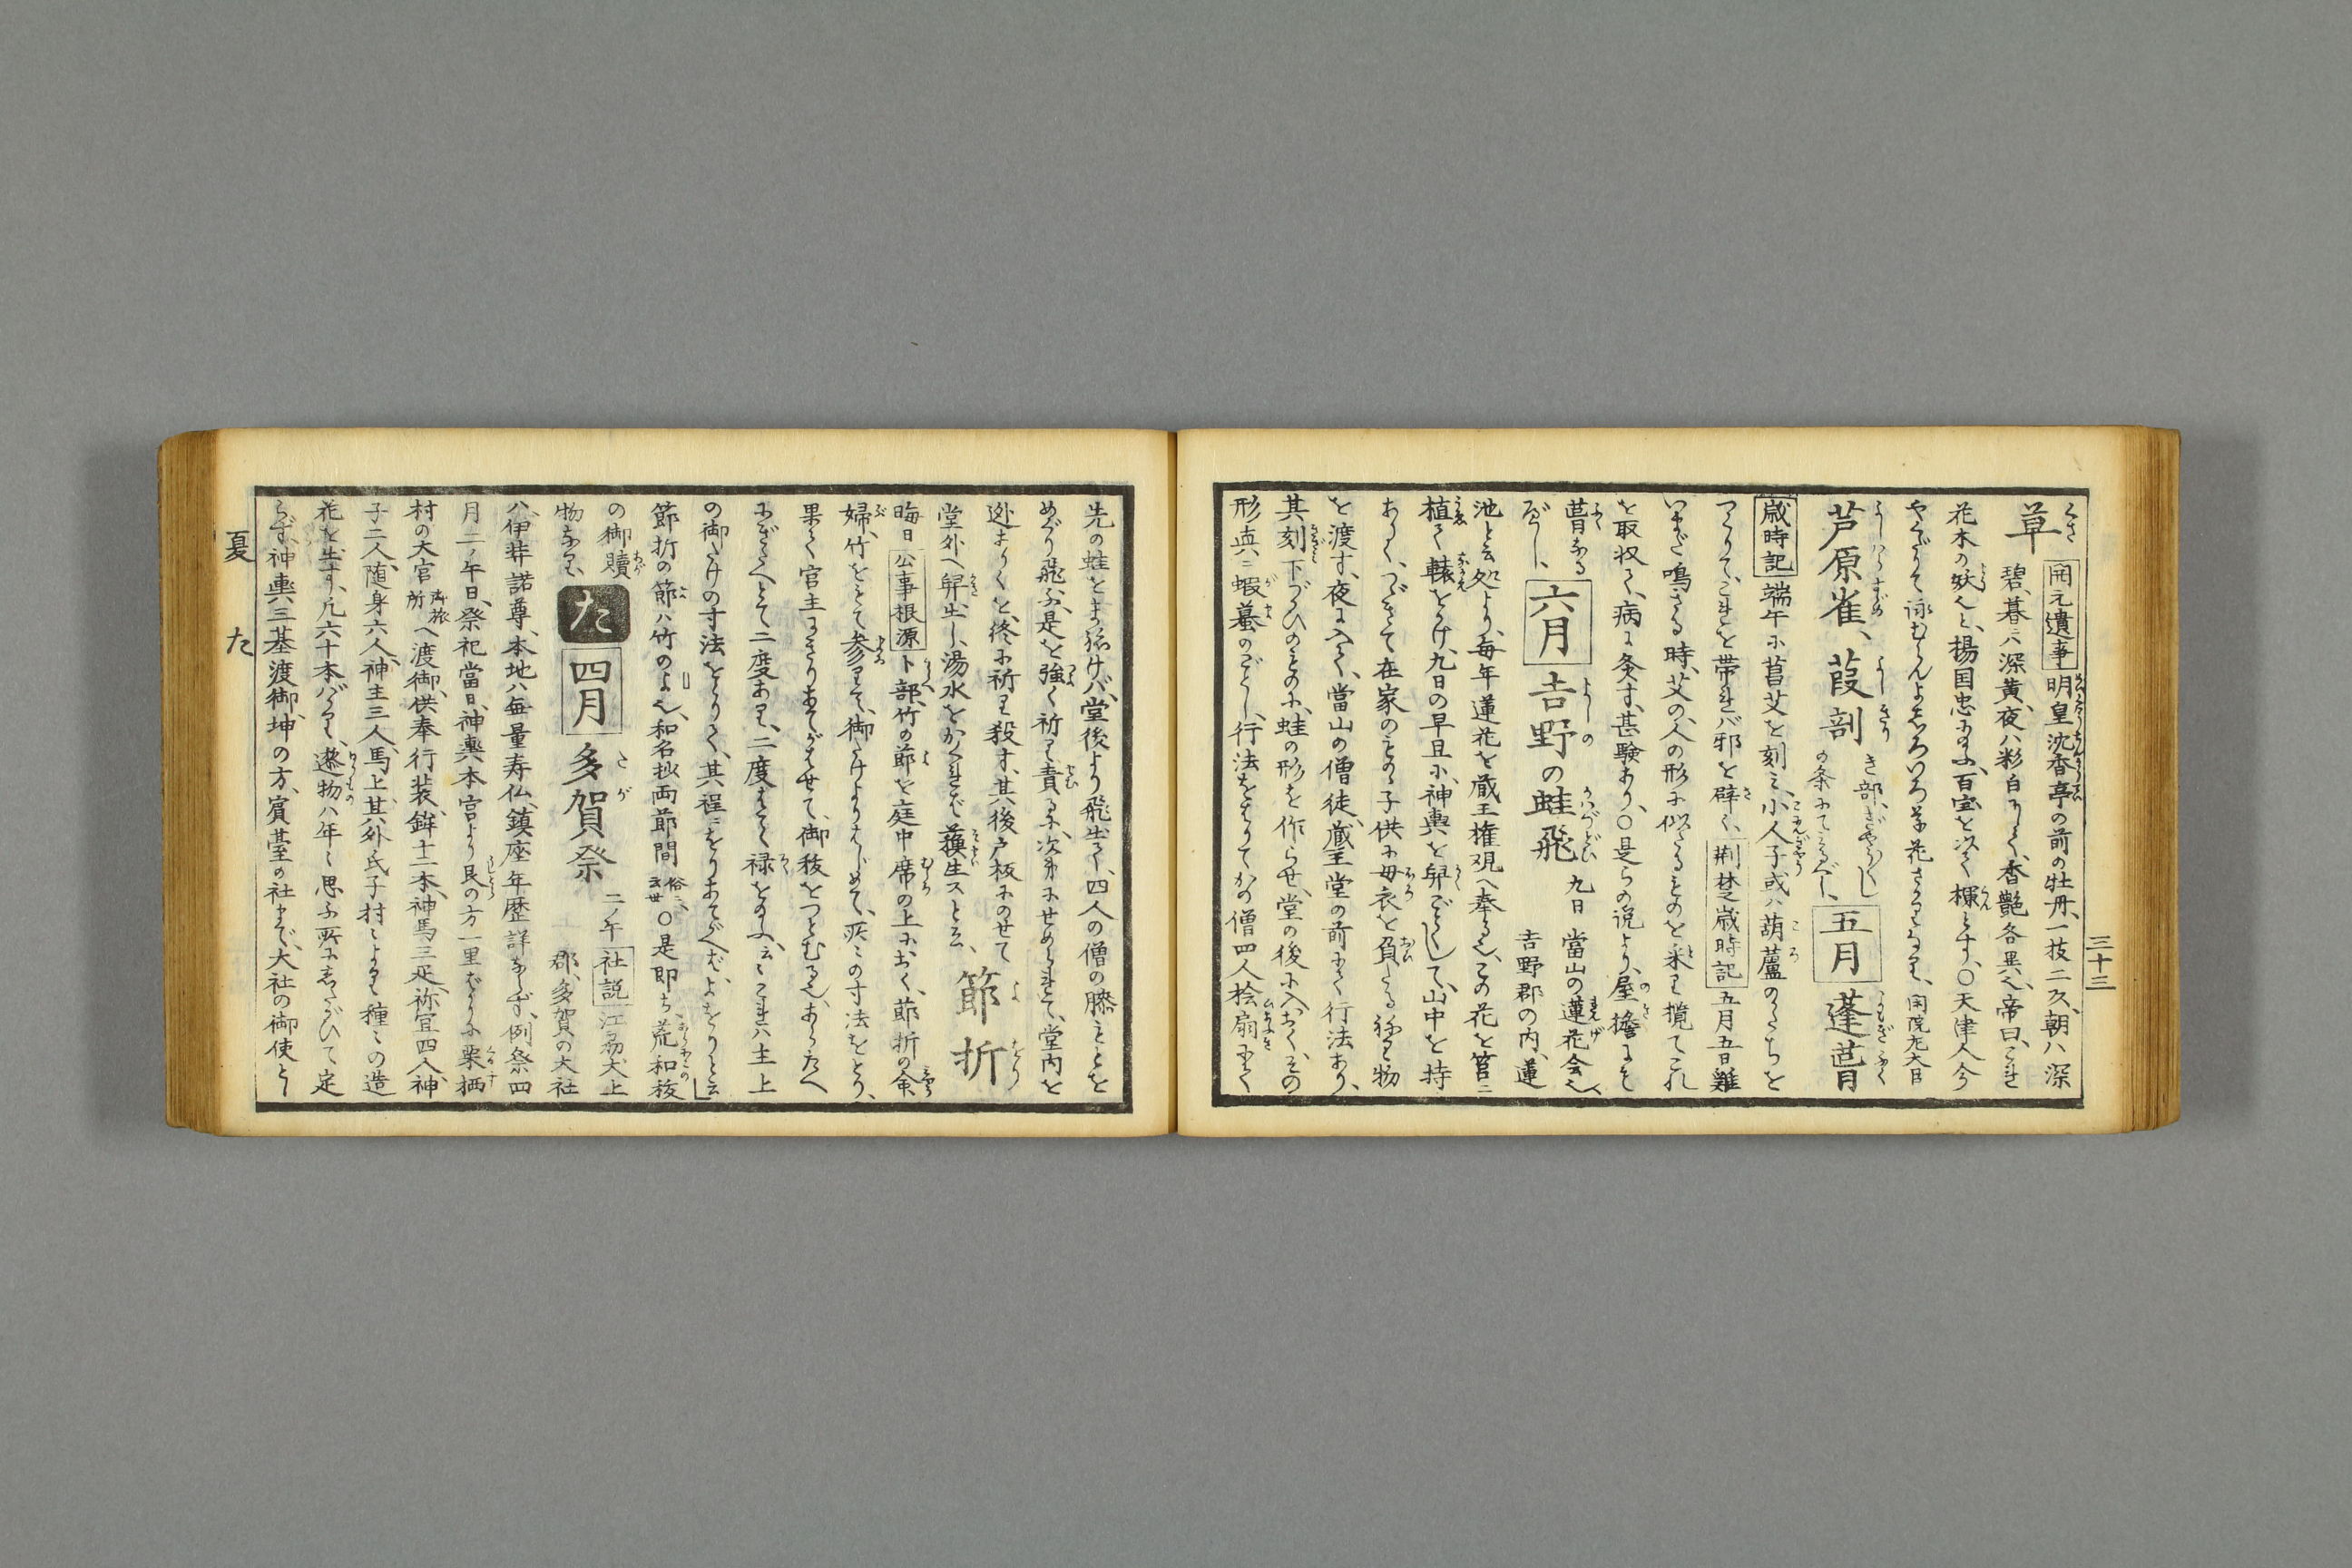 三十三
草 開元遺事 明皇沈香亭の前の牡丹、一枝二女、朝ハ深
碧、暮ニハ深黄、夜ハ粉白にして、香艶各異也、帝曰、これ
花木の妖也と、楊国忠に給ふ、百宝を以て欄とす、〇天津人今
芦原雀、葭剖 き部、ぎやう〳〵し
の条にてミるべし、 五月 蓬葺
歳時記 端午に菖艾を刻ミ、小人子或ハ葫蘆のかたちを
つくりて、これを帯れバ邪を辟く、荆楚歳時記 五月五日雞
いまだ鳴ざる時、艾の、人の形に似たるものを采り攬てこれ
を取収て、病に灸す、甚験あり、〇是らの説より、屋檐にも
葺なる
べし、 六月 吉野の蛙飛 九日 當山の蓮花会也、
吉野郡の内、蓮
池と云処より、毎年蓮花を蔵王権現へ奉る也、この花を筥ニ
植て轅をつけ、九日の早旦に、神輿を舁ごとくして、山中を持
ありく、つゞきて在家のもの、子供に母衣を負たる
を渡す、夜に入て、當山の僧徒、蔵王堂の前にて行法あり、
其刻下づかひのものに、蛙の形を作らせ、堂の後に入おく、その
形真ニ蝦蟇のごとし、行法をはりてかの僧四人桧扇にて
先の蛙をまねけバ、堂後より飛出て、四人の僧の膝もとを
めぐり飛ぶ、是を強く祈り責るに、次第にせめられて、堂内を
逃まハくを、終に祈り殺す、其後戸板にのせて
堂外へ舁出し、湯水をかくれバ蘓生スと云、 節折
晦日 公事根源 卜部、竹の節を庭中席の上におく、節折の命
婦、竹をもて参りて、御たけよりはじめて、所ミの寸法をとり、
果て官主にきりあてがハせて、御秡をつとむる也、あらたへ
にぎたへとて二度あり、二度はてゝ禄を給ふ、云ミこれハ主上
の御たけの寸法をとりて、其程ニをりあてがへバ、よをりと云
節折の節ハ竹のよ也、和名抄両節間 俗ニ云世 〇是即ち荒和秡
の御贖
物なり、 た 四月 多賀祭 二ノ午 社説 江刕犬上
郡、多賀の大社
ハ、伊弉諾尊、本地ハ毎量寿仏、鎮座年歴詳ならず、例祭四
月二ノ午日、祭祀當日、神輿本宮より艮の方一里ばかりに栗栖
村の大宮 御旅所 へ渡御、供奉行装、鉾十二本、神馬三疋、祢宜四人、神
子二人、随身六人、神主三人、馬上其外氏子村ミより種ミの造
花を出す、凡六十本ばかり、邌物ハ年ミ思ふ所にしたがひて定
らず、神輿三基渡御、坤の方、賓臺の社まで、大社の御使とし
夏 た